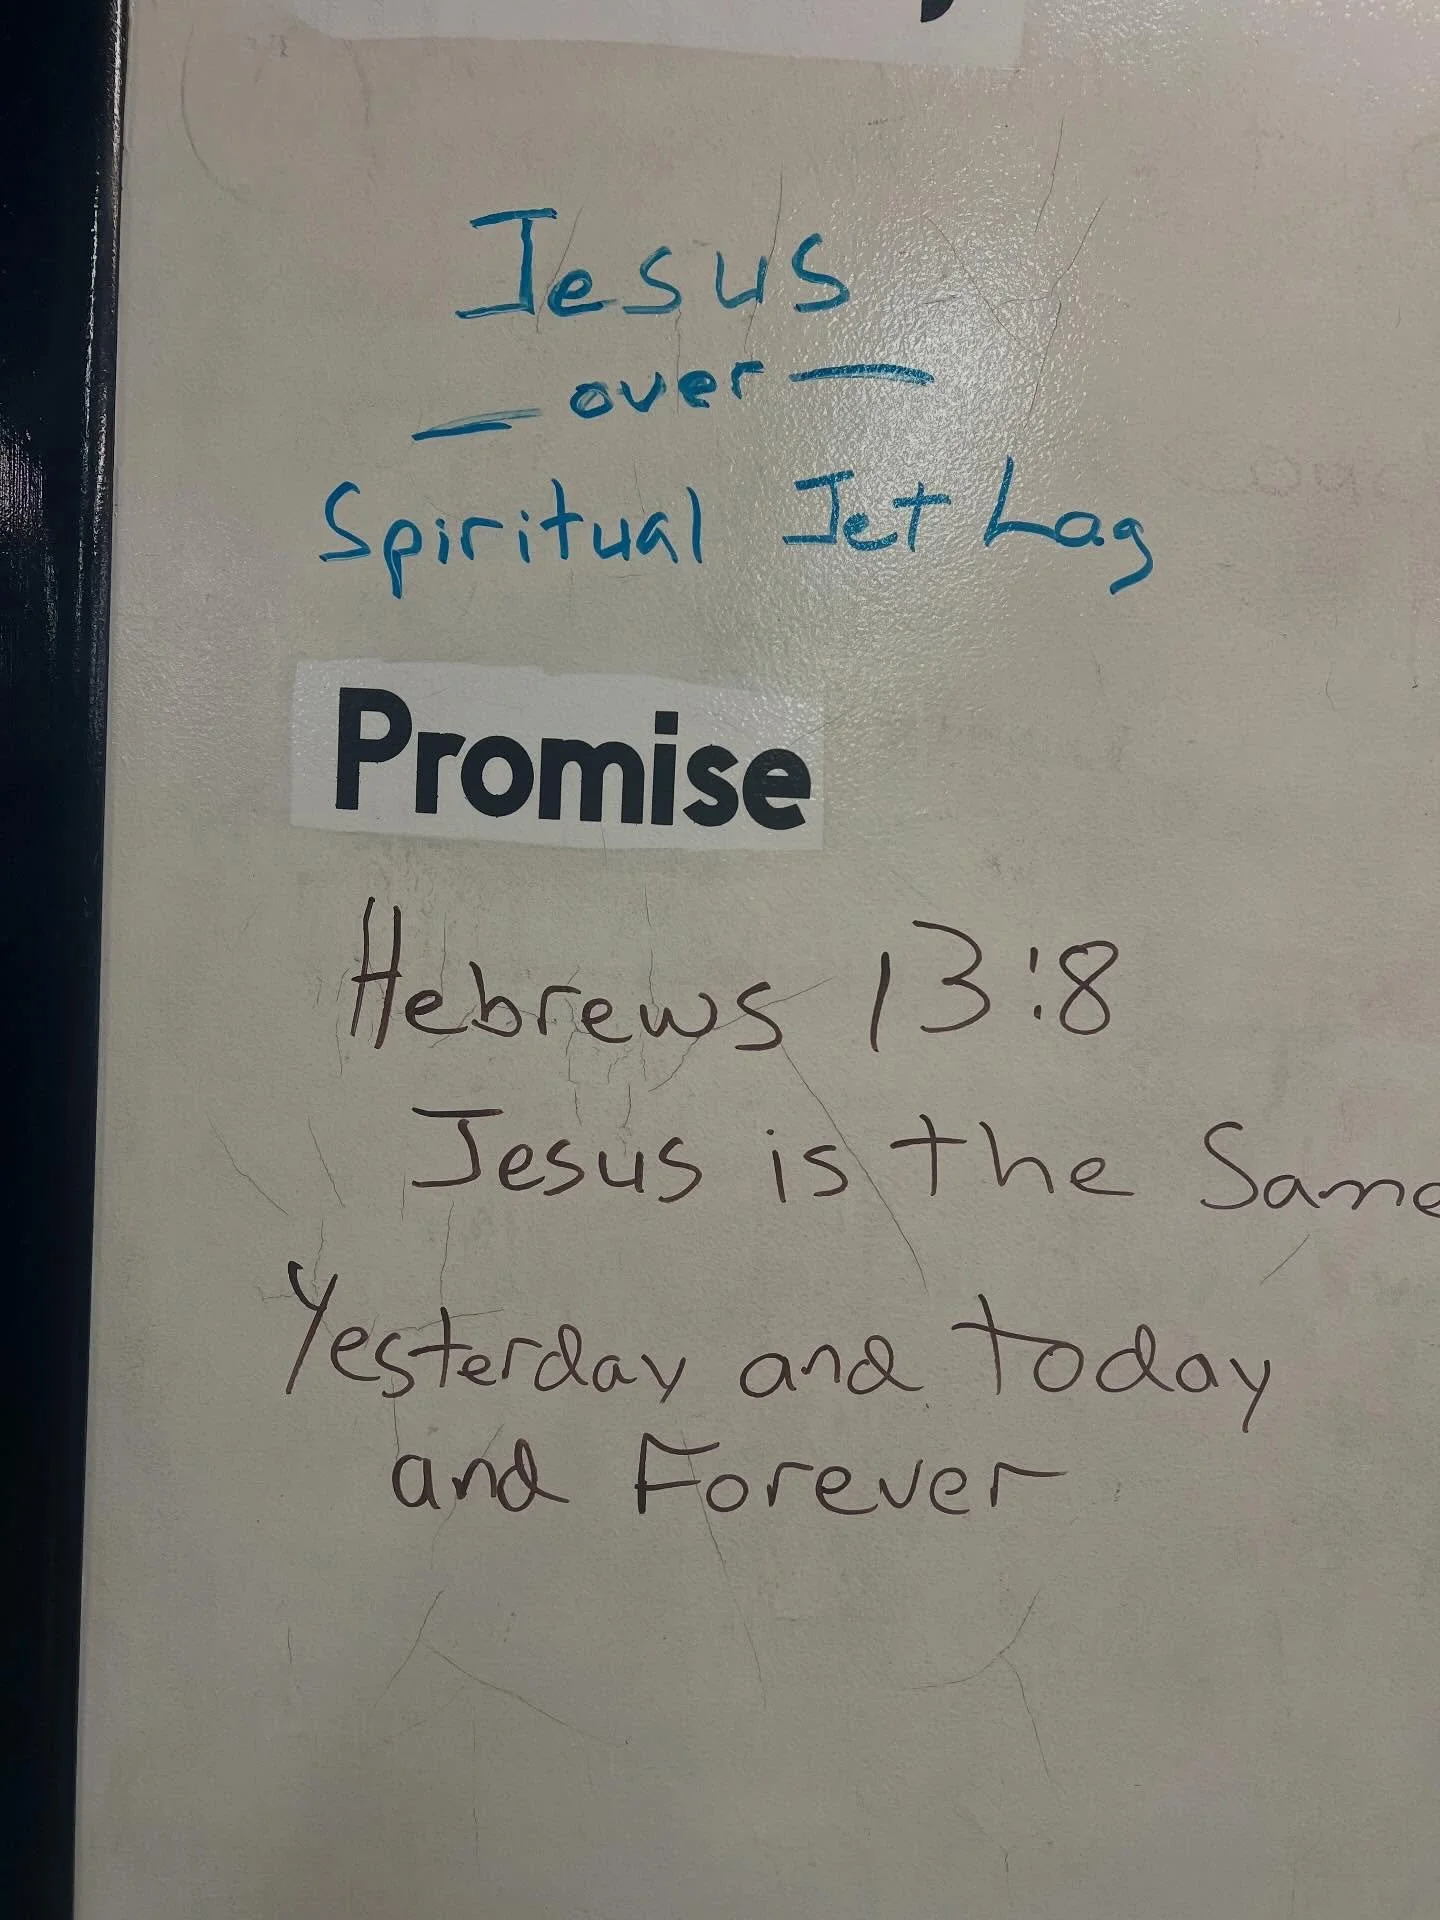 Jesus
— over —
Spiritual Jet Lag
Promise
Hebrews 13:8
Jesus is the Same
Yesterday and today
and Forever